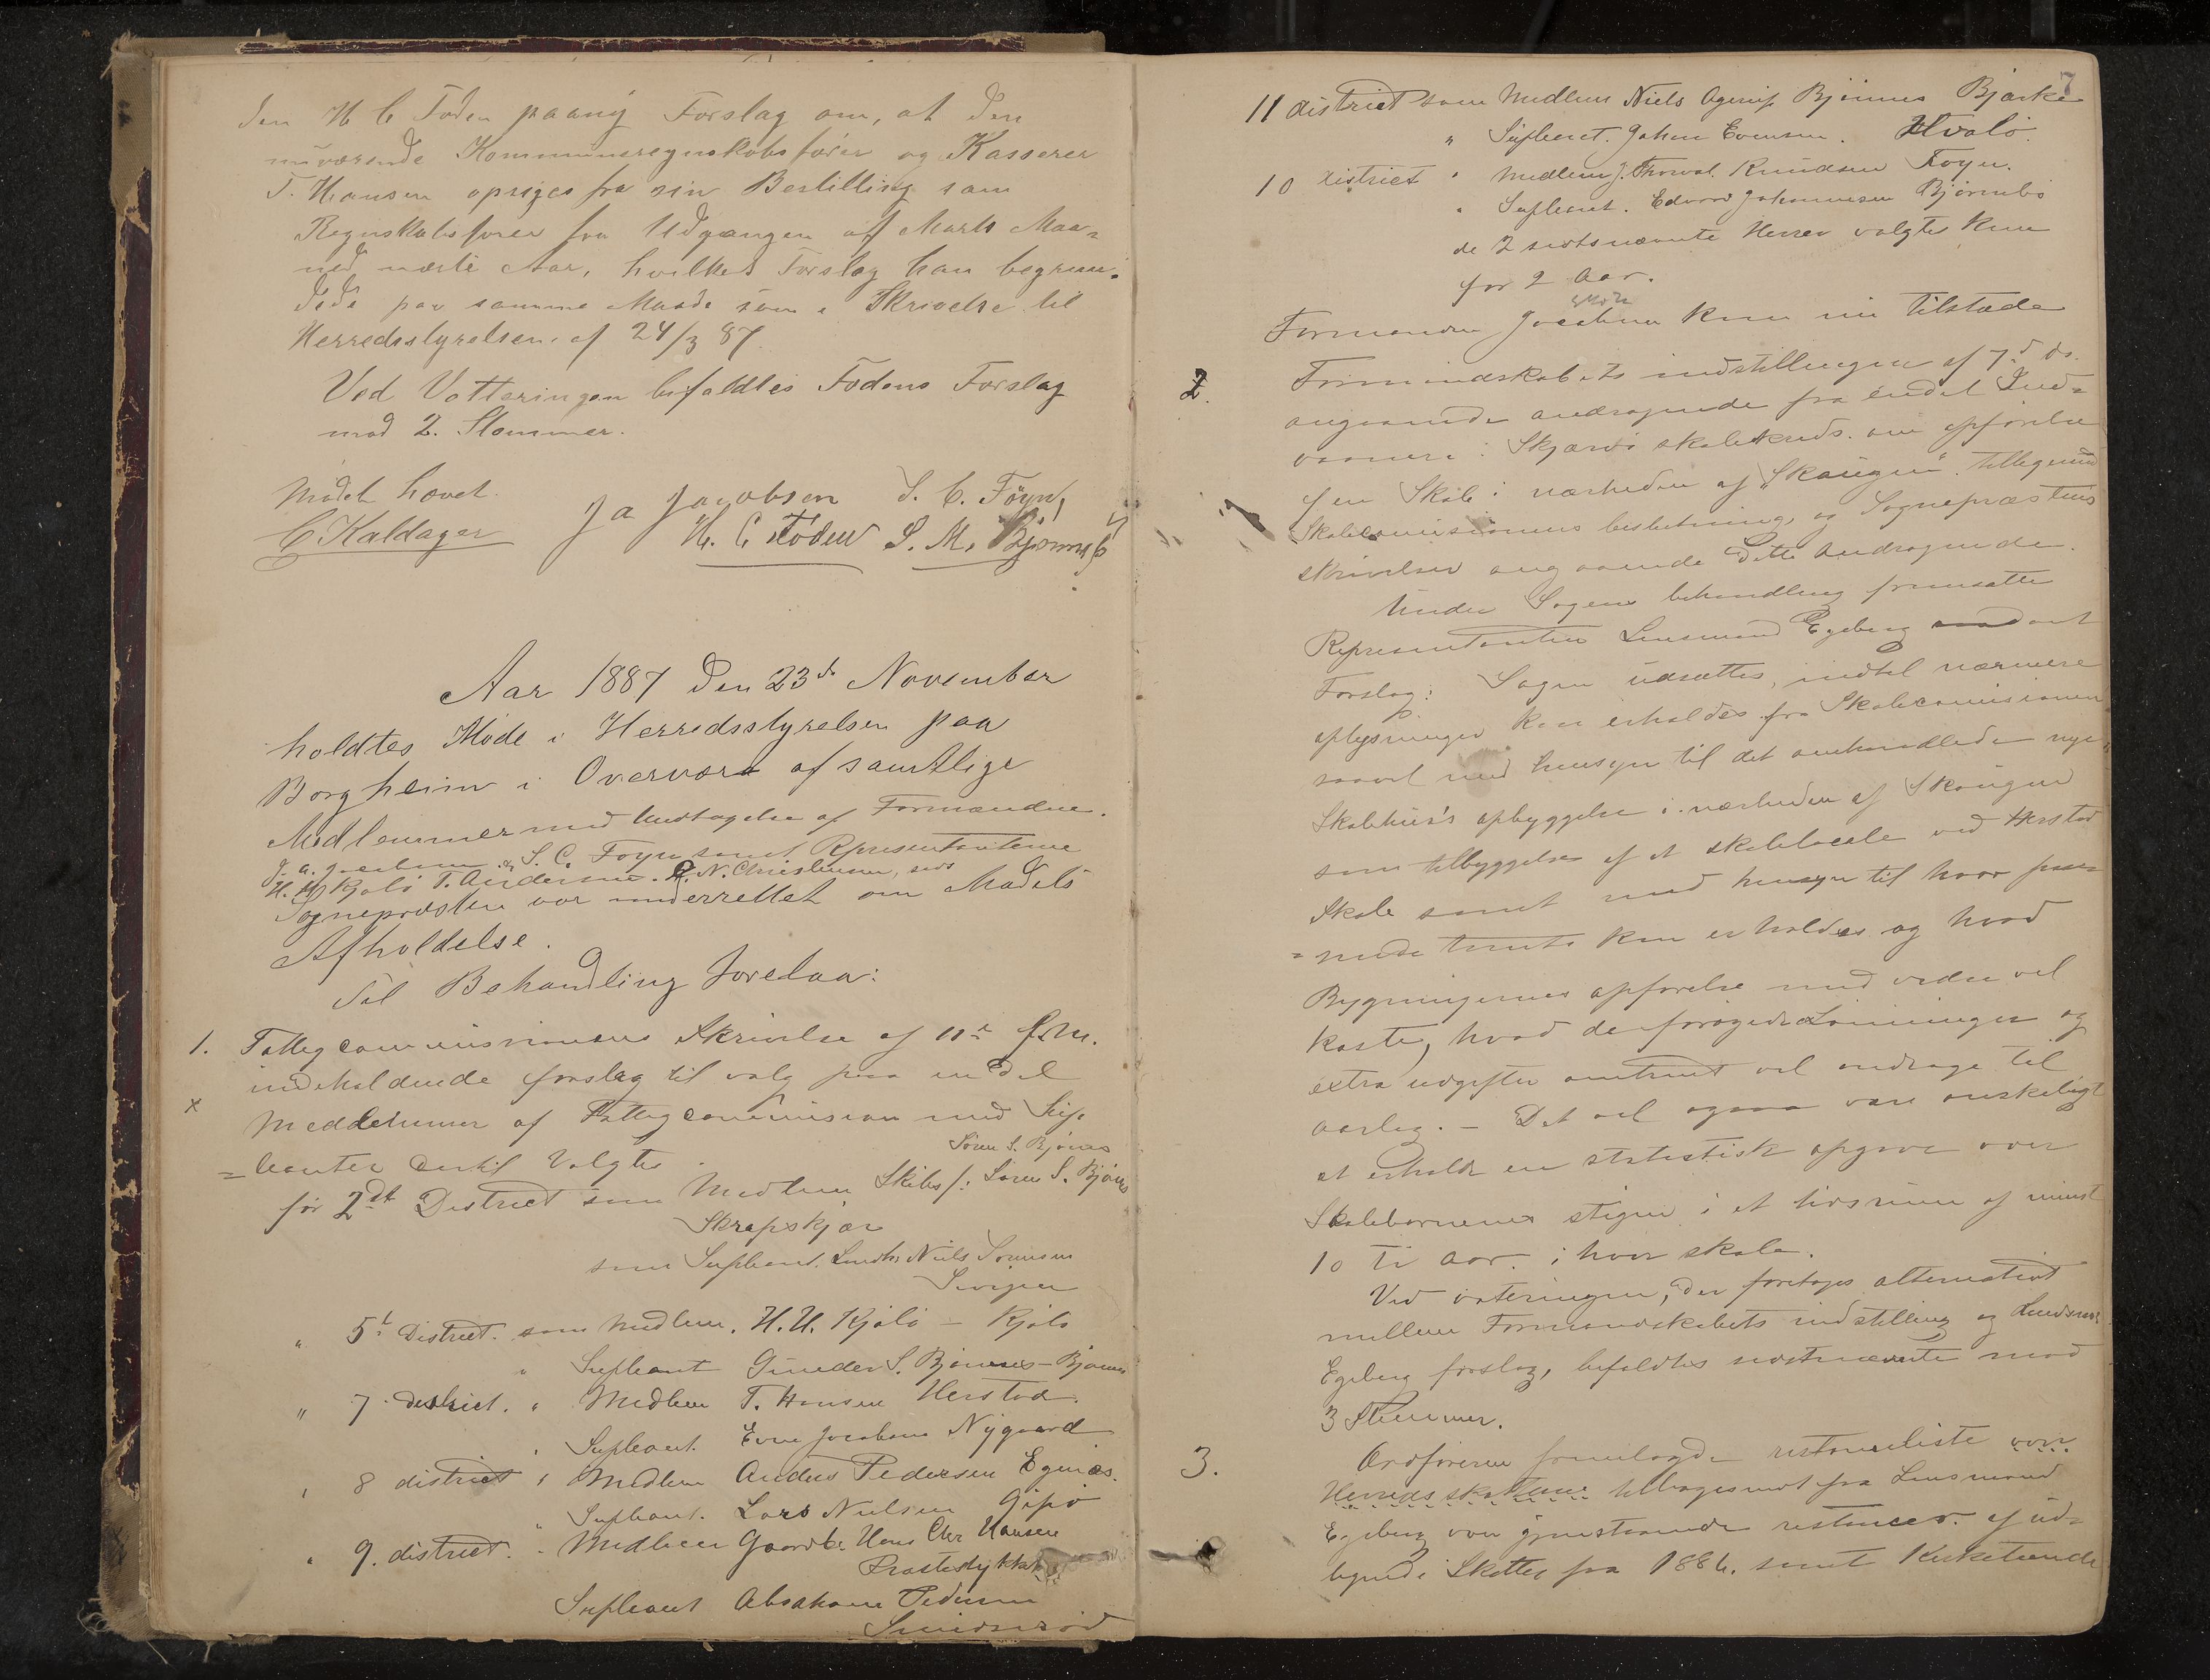 den H C Foden paany Forslag om, at den
nuværende Kommuneregnskabsfører og Kasserer
T. Hansen opsiges fra sin Bestilling som
Regnskabsfører fra Udgangen af Marts Maa=
ned næste Aar, hvilket Forslag han begrun=
dede paa samme Maade som i Skrivelse til
Herredsstyrelsen af 24/3 87.
Ved Votteringen bifaldtes Fodens Forslag
mod 2. Stemmer.
Mødet hævet.
C Kaldager Ja Jacobsen S. C. Föyn,
H. C. Foden S. M. Bjønnes
Aar 1887 den 23de November
holdtes Møde i Herredsstyrelsen paa
Borgheim i Overvær af samtlige
Medlemmer med Undtagelse af Formændene
J. A. Jacobsen & S. C. Foyn samt Repræsentanterne
H. H. Kjølø T. Andersen. N. Christensen,
Sognepræsten var underrettet om Mødets
Afholdelse.
Til Behandling forelaa:
1. Fattigcommissionens Skrivelse af 11te f.M.
indeholdende forslag til valg paa en Del
x Meddelemmer af Fattigcommission med Sup
=leanter dertil Valgtes
Søren S. Bjønes
for 2det District som Medlem Skibsf: Søren S. Bjønes
Skrapskjær
som Supleant. Niels Sørensen
5t District. som Medlem. H. H. Kjølø – Kjølø
" Supleant Gunder S. Bjønnes – Bjønnes
" 7. district. " Medlem T. Hansen Herstad.
" Supleant. Jacobsen Nygaard
" 8 district " Medlem Anders Pedersen Egenæs.
" Supleant. Lars Nielsen Gipø
" 9. district. " Medlem Gaardb. Hans Chr Hansen
Præstestykket
Supleant Absahon Pedersen
7
11 district som Medlem Niels Agerup Bjönnes Bjerke
" Supleant. Johan Evensen. Hvalø.
10 district " Medlem J. Thorval. Knudsen Foyn.
" Supleant. Edvard Johannesen Bjørnebø
de 2 sidtsnævnte Herrer valgtes kun
for 2 Aar.
Formanden Jacobsen kom nu tilstæde
2. Formandskabets indstillingen af 7d ds.
angaaende andragende fra endel Ind=
vaanere i Skjærsø skolekreds om opførelse
af en Skole i nærheden af "Skaugen". Tilligemed
Skolecomisionens beslutning, og Sognepræstens
skrivelser angaaende dette Andragende.
Under Sagens behandling fremsatte
Representanten Lensmand Egeberg saadant
Forslag: Sagen udsættes, indtil nærmere
oplysninger kan erholdes fra Skolecomisionen
saavel med hensyn til det omhandlede nye
Skolehus's opbyggelse i nærheden af Skaugen
som tilbyggelse af et skolelocale ved Herstad
Skole samt med hensyn til hvor pas=
=sende tomte kan erholdes og hvad
Bygningernes opførelse med videre vil
koste, hvad de forøgede Lønninger og
extra udgifter omtrent vil andrage til
aarlig. – Det vil ogsaa være ønskeligt
at erholde en statistisk opgave over
Skolebørnenes stigen i et tidsrum af mindst
10 ti aar i hver skole.
Ved voteringen, der foretoges alternativt
mellem Formandskabets indstilling og Lendsmd.
Egeberg forslag, bifaldtes sidstnævnte mod
3 Stemmer.
3. Ordføreren fremlagde restanceliste over
Herredsskatterne tilbagesendt fra Lensmand
Egeberg over gjenstaaende restancer af ud=
lignede Skatter fra 1886. samt Kirketiende